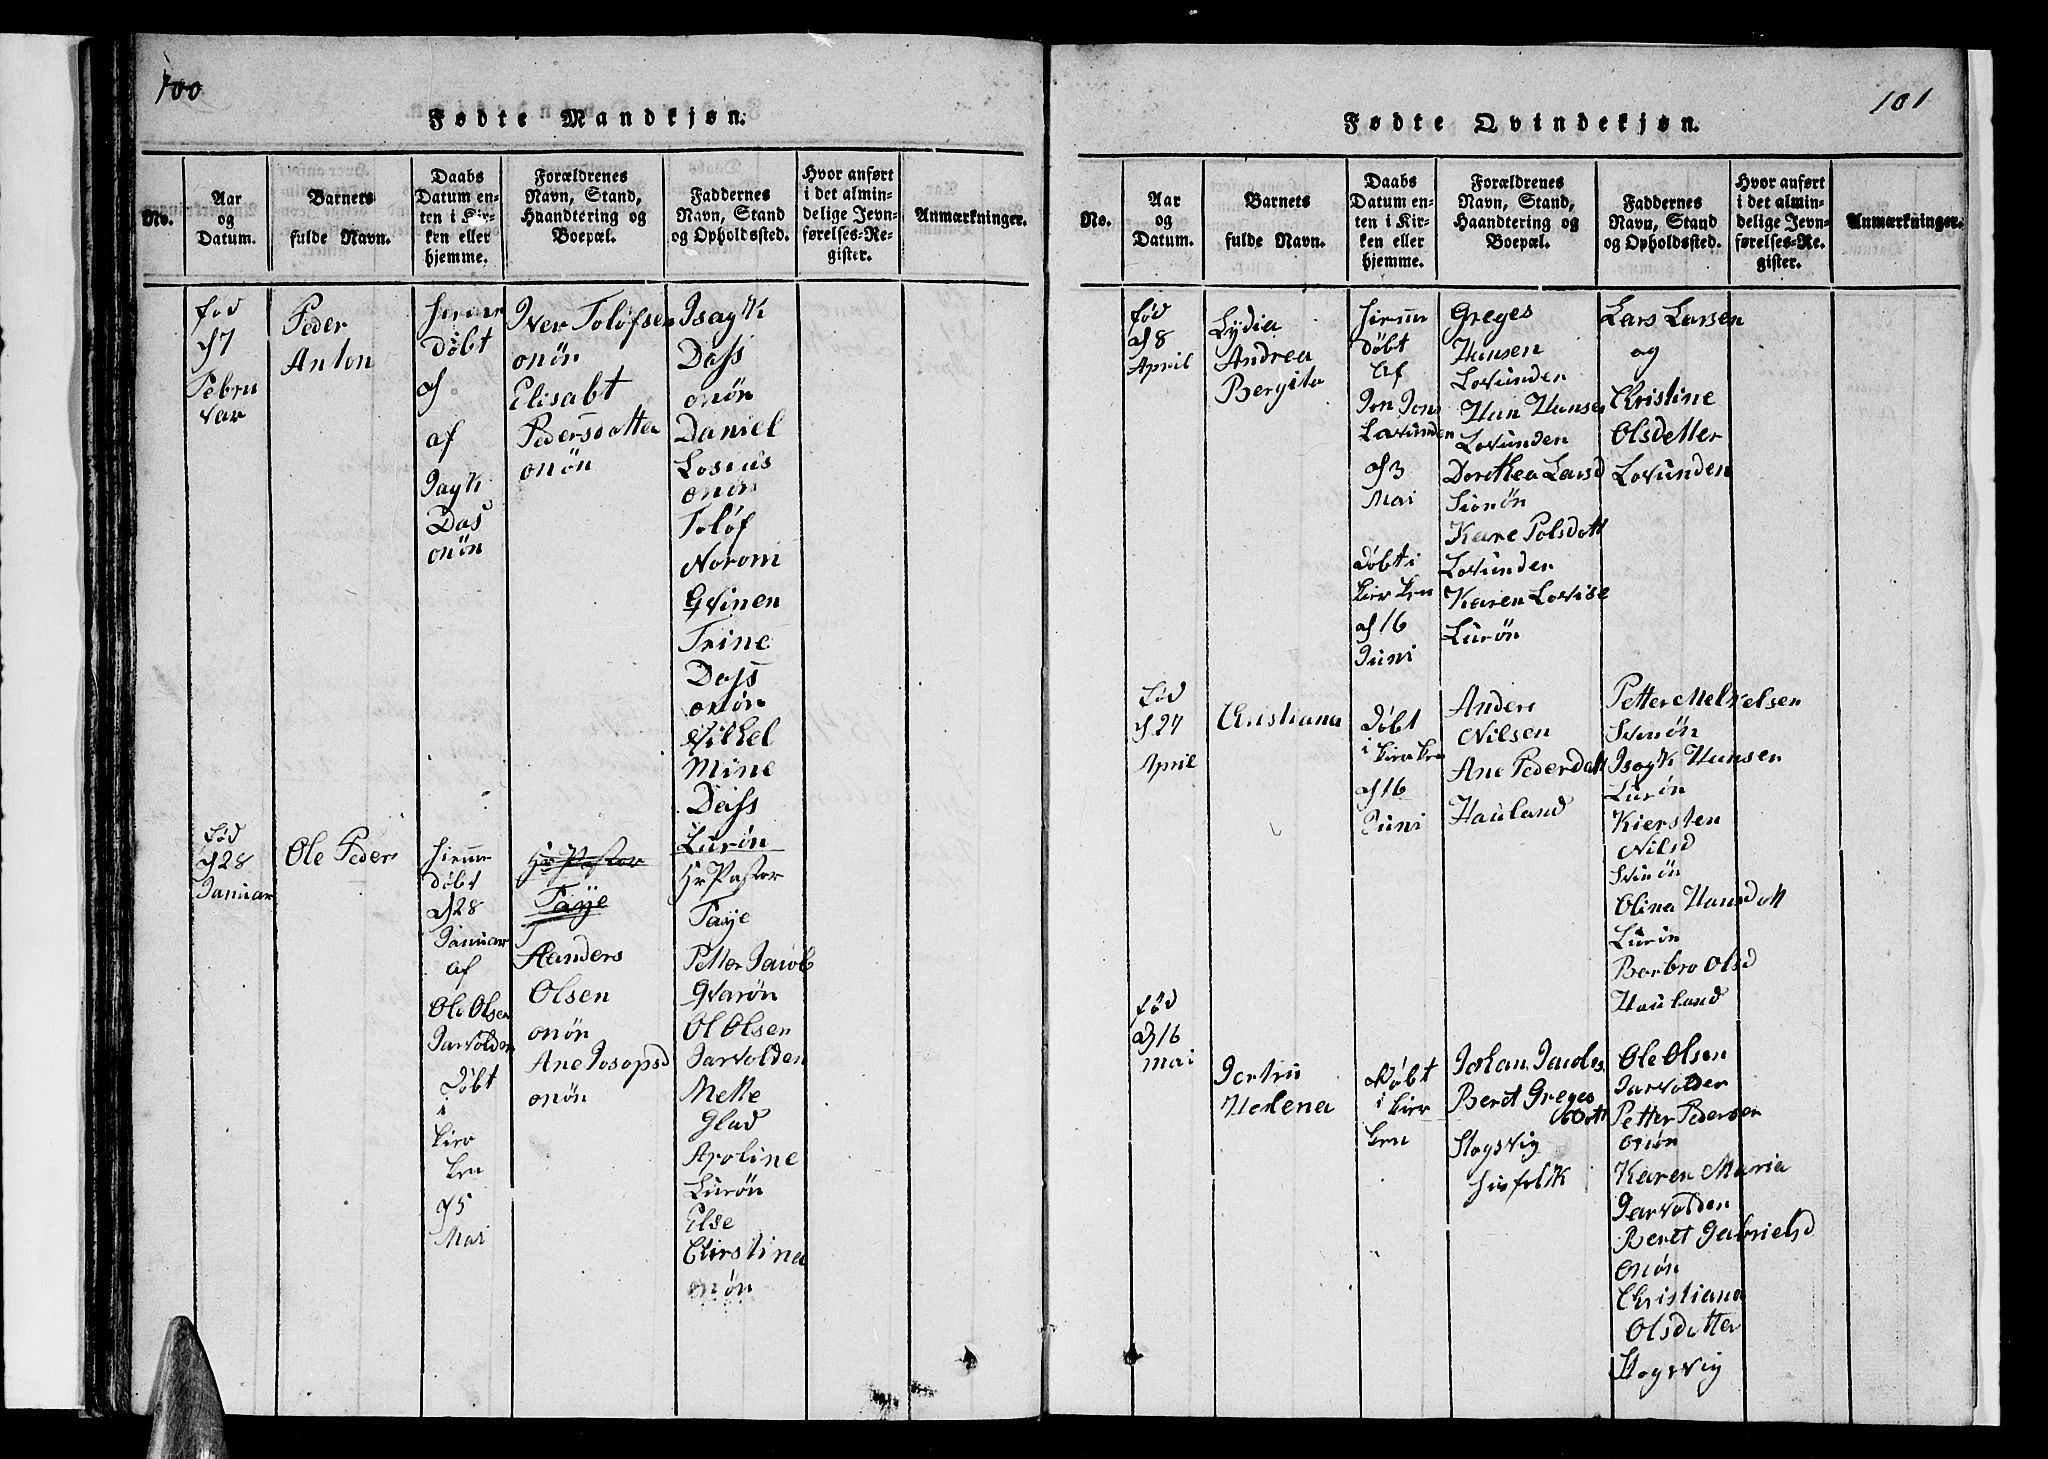 100
Fødte Mandkjøn.
No.
Aar
og
Datum.
Barnets
fulde Navn.
Daabs
Datum en-
ten i Kir-
ken eller
hjemme.
Forældrenes
Navn, Stand,
Haandtering og
Boepæl.
Faddernes
Navn, Stand
og Opholdssted.
Hvor anført
i det almin-
delige Jevn-
førelses-Re-
gister.
Anmærkninger.
fød
d 7
Febru
var
Peder
Anton
døbt
d
af
Jayk
Das
onøn
Iver Toløfsen
onøn
Elisabt
Pedersdotter
onøn
Isayk
Dass
onøn
Daniel
Losius
onøn
Toløf
Norom
Qvinen
Trine
Dass
onøn
Vilhel
Mine
Dass
Lurøn
fød
d 28
Januar
Ole Peder
døbt
d 28
Januar
af
Ole Olsen
Jarvolden
Døbt
i
kier
ken
d 5
Mai
Hr Pastor
Taye
Aanders
Olsen
onøn
Ane Josopsd
onøn
Hr Pastor
Taye
Petter Jacob
Qvarøn
Ol Olsen
Jarvolden
Mette
Glad
Apoline
Lurøn
Else
Christina
onøn
101
Fødte Qvindekjøn.
No.
Aar
og
Datum.
Barnets
fulde Navn.
Daabs
Datum en-
ten i Kir-
ken eller
hjemme.
Forældrenes
Navn, Stand,
Haandtering og
Boepæl.
Faddernes
Navn, Stand
og Opholdssted.
Hvor anført
i det almin-
delige Jevn-
førelses-Re-
gister.
Anmærkninger.
fød
d 8
April
Lydia
Andrea
Bergita
døbt
af
Jon Jons
Lovunden
d 3
Mai
Døbt i
kierken
d 16
Juni
Greges
Hansen
Lovunden
Han Hansen
Lovunden
Dorethea Larsd
Sionøn
Kare Polsdott
Lovunden
Karen Lovise
Lurøn
Lars Larsen
og
Christine
Olsdetter
Lovunden
fød
d 27
April
Christiana
Døbt
i kierken
d 16
Juni
Anders
Nilsen
Ane Pederdatt
Hauland
Petter Melkelsen
Svinøn
Isayk Hansen
Lurøn
Kiersten
Nilsd
Svinøn
Olina Hansdatt
Lurøn
Berbro Olsd
Hauland
fød
d 16
mai
Jertru
Helena
Døbt
i kier
ken
Johan Jacobs
Beret Greges
dott
Stogsvig
Ole Olsen
Jarvolden
Petter Pedersen
onøn
Karen Maria
Jarvolden
Beret Gabrielsd
onøn
Christiana
Olsdatter
Stogsvig